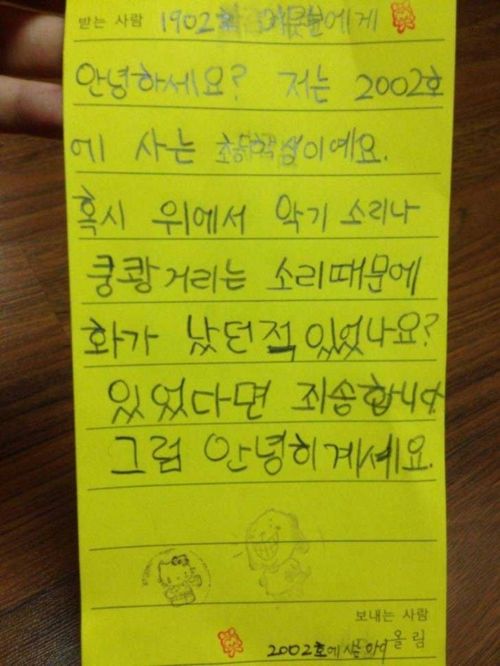 받는 사람 1902호 에게
안녕하세요? 저는 2002호
에 사는 초등학생이예요.
혹시 위에서 악기 소리나
쿵쾅거리는 소리때문에
화가 났던적 있었나요?
있었다면 죄송합니다
그럼 안녕히계세요.
보내는 사람
2002호에 올림